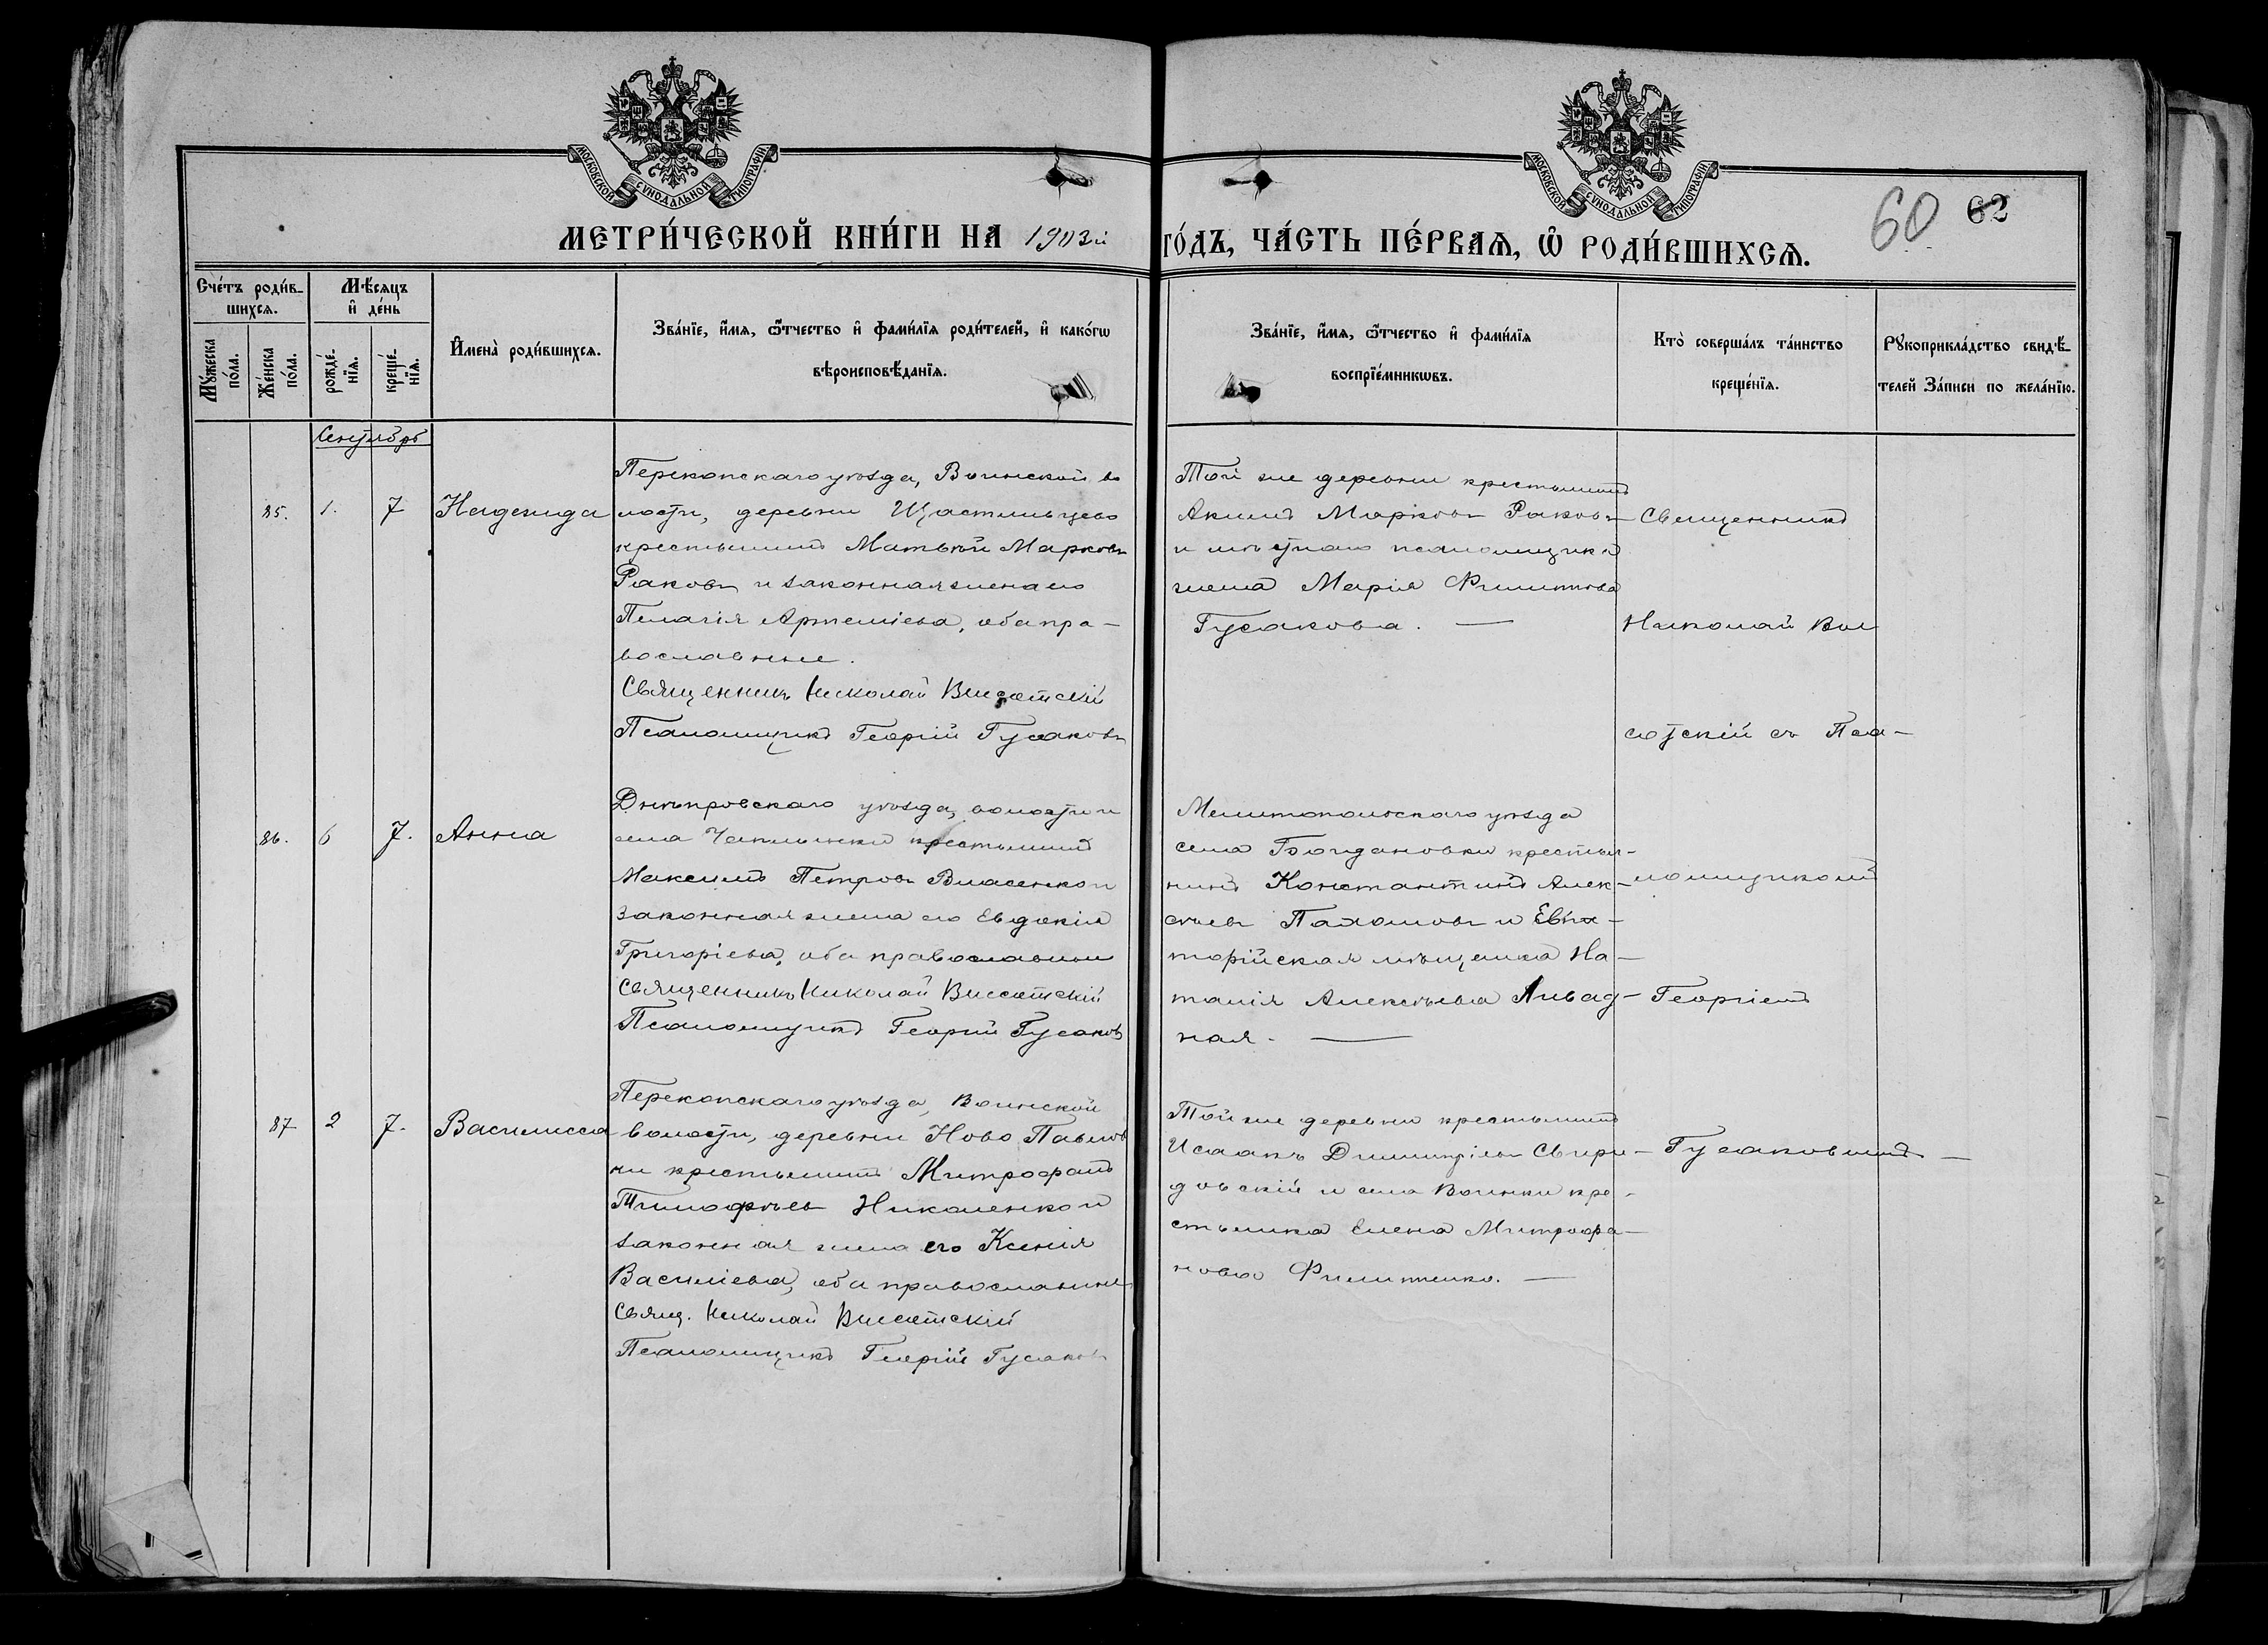 МОСКОВСКОЙ СѴНОДАЛЬНОЙ ТИПОГРАФІИ
МОСКОВСКОЙ СѴНОДАЛЬНОЙ ТИПОГРАФІИ
60 62
МЕТРИ́ЧЕСКОЙ КНИ́ГИ НА 1903й
ГО́ДЪ, ЧА́СТЬ ПЕ́РВАѦ, Ѡ҆ РОДИ́ВШИХСѦ.
Сче́тъ роди́в-
шихсѧ.
Мꙋ́жеска
по́ла.
Же́нска
по́ла.
Мѣ́сѧцъ
и҆ де́нь
рожде́-
нїѧ.
креще́-
нїѧ.
И҆мена̀ роди́вшихсѧ.
Зва́нїе, и҆́мѧ, ѻ҆́тчество и҆ фами́лїѧ роди́телей, и҆ како́гѡ
вѣроисповѣ́данїѧ.
Зва́нїе, и҆́мѧ, ѻ҆́тчество и҆ фами́лїѧ
воспрїе́мникѡвъ.
Кто̀ соверша́лъ та́инство
креще́нїѧ.
Рꙋкоприкла́дство свидѣ́-
телей За́писи по жела́нїю.
Сентябрь
85. 1. 7 Надежда
Перекопскаго уѣзда, Воинской во
лости, деревни Щастливцево
крестьянинъ Матвѣй Марковъ
Раковъ и законная жена его
Пелагія Артеміева, оба пра-
вославные.
Священникъ Николай Высотскій
Псаломщикъ Георгій Гусаковъ
Той же деревни крестьянинъ
Акимъ Марковъ Раковъ
и мѣстнаго псаломщика
жена Марія Филиппова
Гусакова. —
86. 6 7. Анна
Днѣпровскаго уѣзда, волости и
села Чаплынки крестьянинъ
Максимъ Петровъ Власенко и
законная жена его Евдокія
Григоріева, оба православные
Священникъ Николай Высотскій
Псаломщикъ Георгій Гусаковъ
Мелитопольскаго уѣзда
села Богдановки крестья-
нинъ Константинъ Алек-
сѣевъ Пахомовъ и Евпа-
торійская мѣщанка На-
талія Алексѣева Ливад-
ная. —
87 2 7. Василисса
Перекопскаго уѣзда, Воинской
волости, деревни Ново Павлов
ки крестьянинъ Митрофанъ
Тимофѣевъ Николенко и
законная жена его Ксенія
Василіева, оба православные
Свящ. Николай Высотскій
Псаломщикъ Георгій Гусаковъ
Той же деревни крестьянинъ
Исаакъ Димитріевъ Свири-
довскій и села Воинки кре-
стьянка Елена Митрофа-
нова Филипенко. —
Священникъ
Николай Вы
сотскій съ Пса-
ломщикомъ
Георгіемъ
Гусаковымъ —